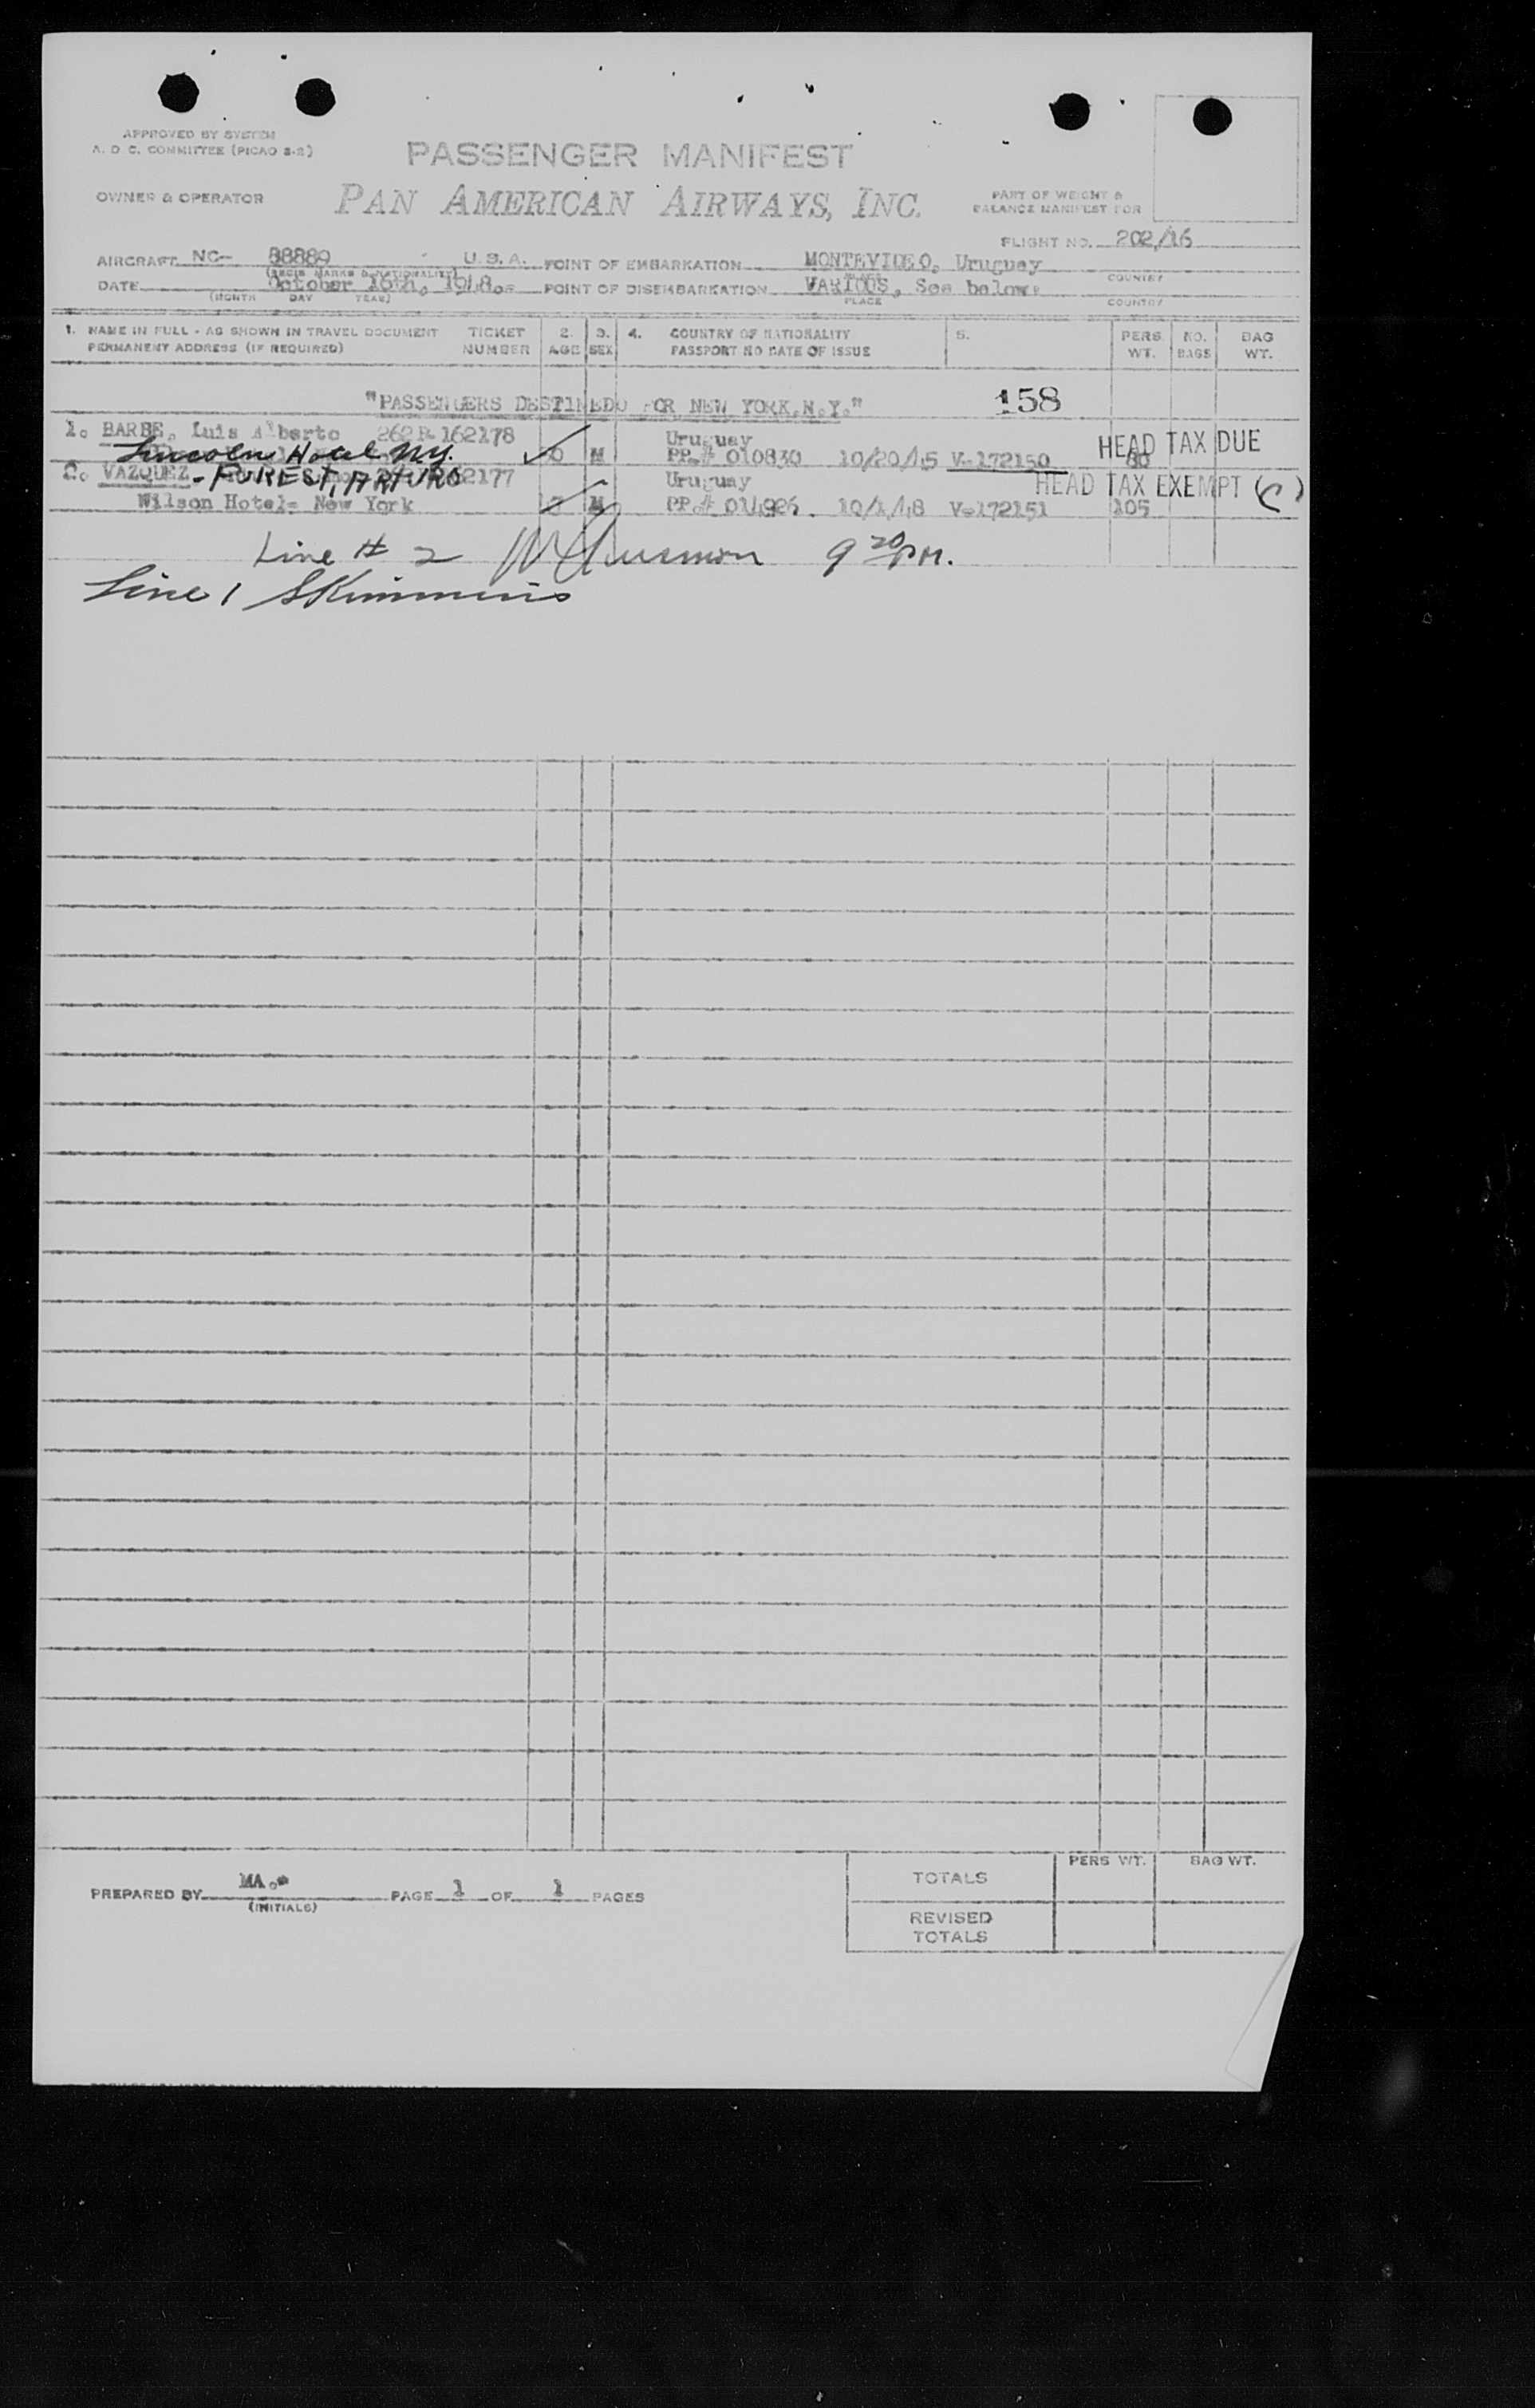 APPROVED BY SYSTEM
A. D. C. COMMITTEE (PICAO S-2)
PASSENGER MANIFEST
OWNER & OPERATOR
PAN AMERICAN AIRWAYS, INC.
PART OF WEIGHT &
BALANCE MANIFEST FOR
FLIGHT NO. 202/16
AIRCRAFT NC- 88889 U.S.A. POINT OF EMBARKATION MONTEVIDEO, Uruguay
(REGIS MARKS & NATIONALITY) PLACE COUNTRY
DATE October 16th, 1948. POINT OF DISEMBARKATION VARIOUS, See below.
(MONTH DAY YEAR) PLACE COUNTRY
1. NAME IN FULL - AS SHOWN IN TRAVEL DOCUMENT TICKET 2. 3. 4. COUNTRY OF NATIONALITY 5. PERS. NO. BAG
PERMANENT ADDRESS (IF REQUIRED) NUMBER AGE SEX PASSPORT NO DATE OF ISSUE WT. BAGS WT.
"PASSENGERS DESTINED FOR NEW YORK, N.Y." 158
1. BARBE, Luis Alberto 262B-162178 Uruguay HEAD TAX DUE
Lincoln Hotel NY. M PP.# 010830 10/20/45 V-172150 80
2. VAZQUEZ - FOREST, ARTURO 162177 Uruguay HEAD TAX EXEMPT (C)
Wilson Hotel- New York M PP.# 014926. 10/1/48 V-172151 105
Line # 2 9 20 PM.
Line 1 SKimmins
PREPARED BY MA. PAGE 1 OF 1 PAGES
(INITIALS)
PERS WT. BAG WT.
TOTALS
REVISED
TOTALS